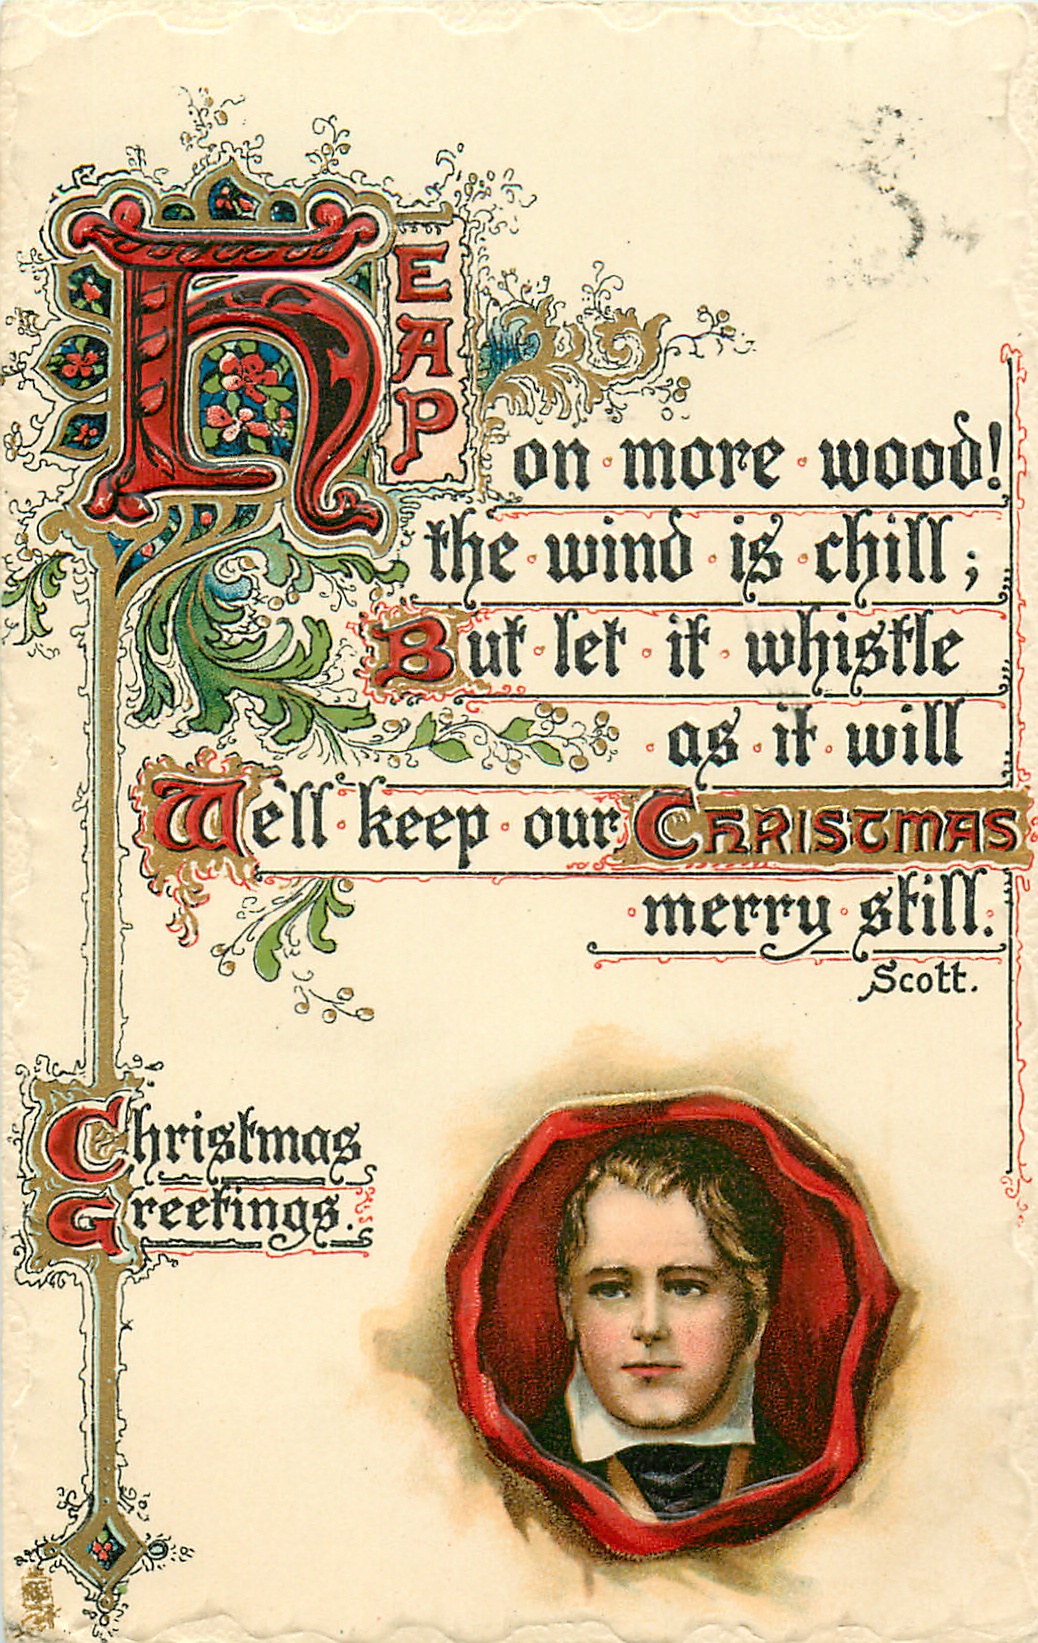 HEAP on more wood!
the wind is chill;
But let it whistle
as it will
We'll keep our CHRISTMAS
merry still.
Scott.
Christmas
Greetings.